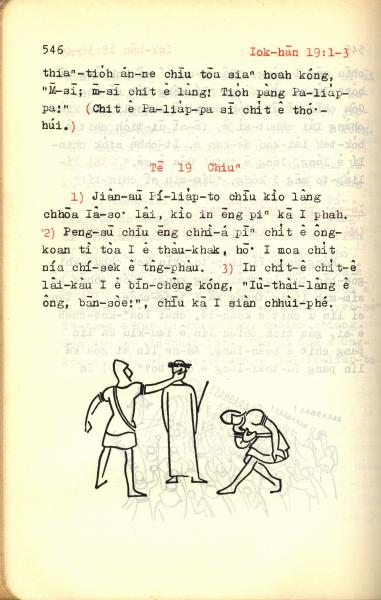 546 Iok-hān 19:1-3
thiaⁿ-tio̍h án-ne chīu tōa siaⁿ hoah kóng,
"M̄-sī; m̄-sī chit ê lâng! Tio̍h pàng Pa-lia̍p-
pa!" (Chit ê Pa-lia̍p-pa sī chi̍t ê thó͘-
húi.)
Tē 19 Chiuⁿ
1) Jiân-āu Pí-lia̍p-to chīu kìo lâng
chhōa Iâ-so͘ lâi, kìo in ēng piⁿ kā I phah.
2) Peng-sū chīu ēng chhì-á pīⁿ chi̍t ê ông-
koan tì tòa I ê thâu-khak, hō͘ I moa chi̍t
nía chí-sek ê tn̂g-phàu. 3) In chi̍t-ê chi̍t-ê
lâi-kàu I ê bīn-chêng kóng, "Iû-thài-lâng ê
ông, bān-sòe!", chīu kā I siàn chhùi-phé.